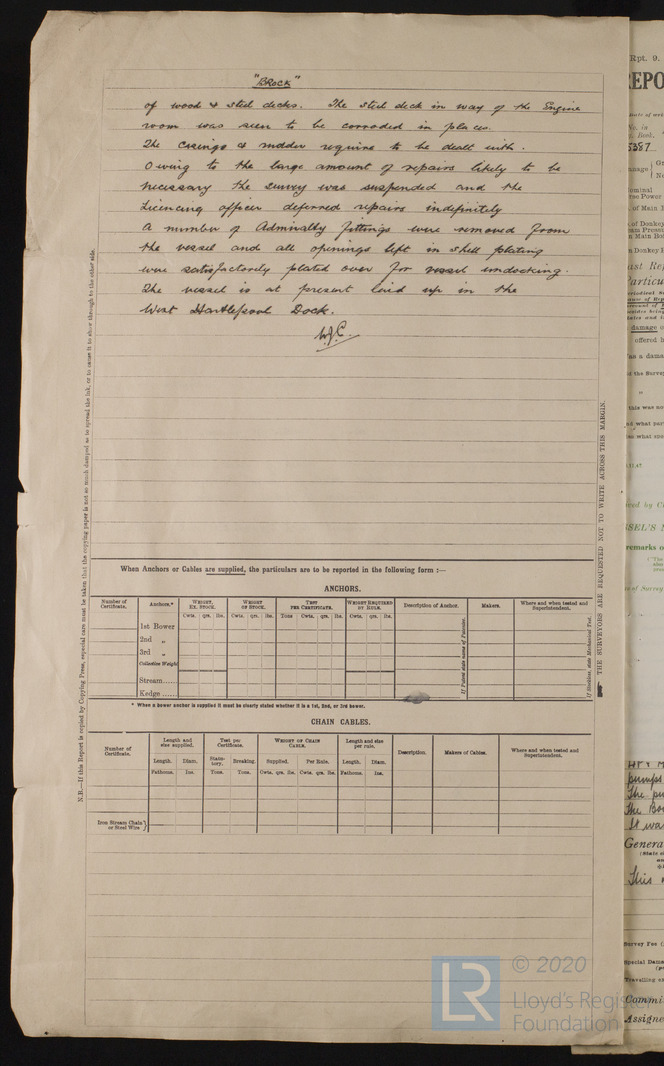 "BROCK"
of wood & steel decks. The steel deck in way of the Engine
room was seen to be corroded in places.
The casings & rudder require to be dealt with.
Owing to the large amount of repairs likely to be
necessary the survey was suspended and the
Licencing officer deferred repairs indefinitely
A number of Admiralty fittings were removed from
the vessel and all openings left in shell plating
were satisfactorily plated over for vessel undocking.
The vessel is at present laid up in the
West Hartlepool Dock.
W.J.C.
When Anchors or Cables are supplied, the particulars are to be reported in the following form :—
ANCHORS.
Number of Certificate.
Anchors.*
WEIGHT, EX. STOCK.
WEIGHT OF STOCK.
TEST PER CERTIFICATE.
WEIGHT REQUIRED BY RULE.
Description of Anchor.
Makers.
Where and when tested and Superintendent.
Cwts. qrs. lbs. Cwts. qrs. lbs. Tons Cwts. qrs. lbs. Cwts. qrs. lbs.
1st Bower
2nd „
3rd „
Collective Weight
Stream......
Kedge ......
If Patent state name of Patentee.
If Stockless, state Mechanical Test.
* When a bower anchor is supplied it must be clearly stated whether it is a 1st, 2nd, or 3rd bower.
CHAIN CABLES.
Number of Certificate.
Length and size supplied.
Test per Certificate.
WEIGHT OF CHAIN CABLE.
Length and size per rule.
Description.
Makers of Cables.
Where and when tested and Superintendent.
Length. Diam. Statutory. Breaking. Supplied. Per Rule. Length. Diam.
Fathoms. Ins. Tons. Tons. Cwts. qrs. lbs. Cwts. qrs. lbs. Fathoms. Ins.
Iron Stream Chain or Steel Wire }
N.B.—If this Report is copied by Copying Press, especial care must be taken that the copying paper is not so much damped as to spread the ink, or to cause it to show through to the other side.
THE SURVEYORS ARE REQUESTED NOT TO WRITE ACROSS THIS MARGIN.
Rpt. 9.
REPO
5387
of Main
of Donkey
Main Bo
Donkey
ast Rep
articu
damage
offered
as a dama
the Survey
this was no
.11.47
SSEL'S
remarks o
of Survey
pumps
The pu
The Bo
It wa
Genera
This
Survey Fee (
Special Dama
Travelling ex
Commi
Assigne
LR
© 2020
Lloyd's Register
Foundation